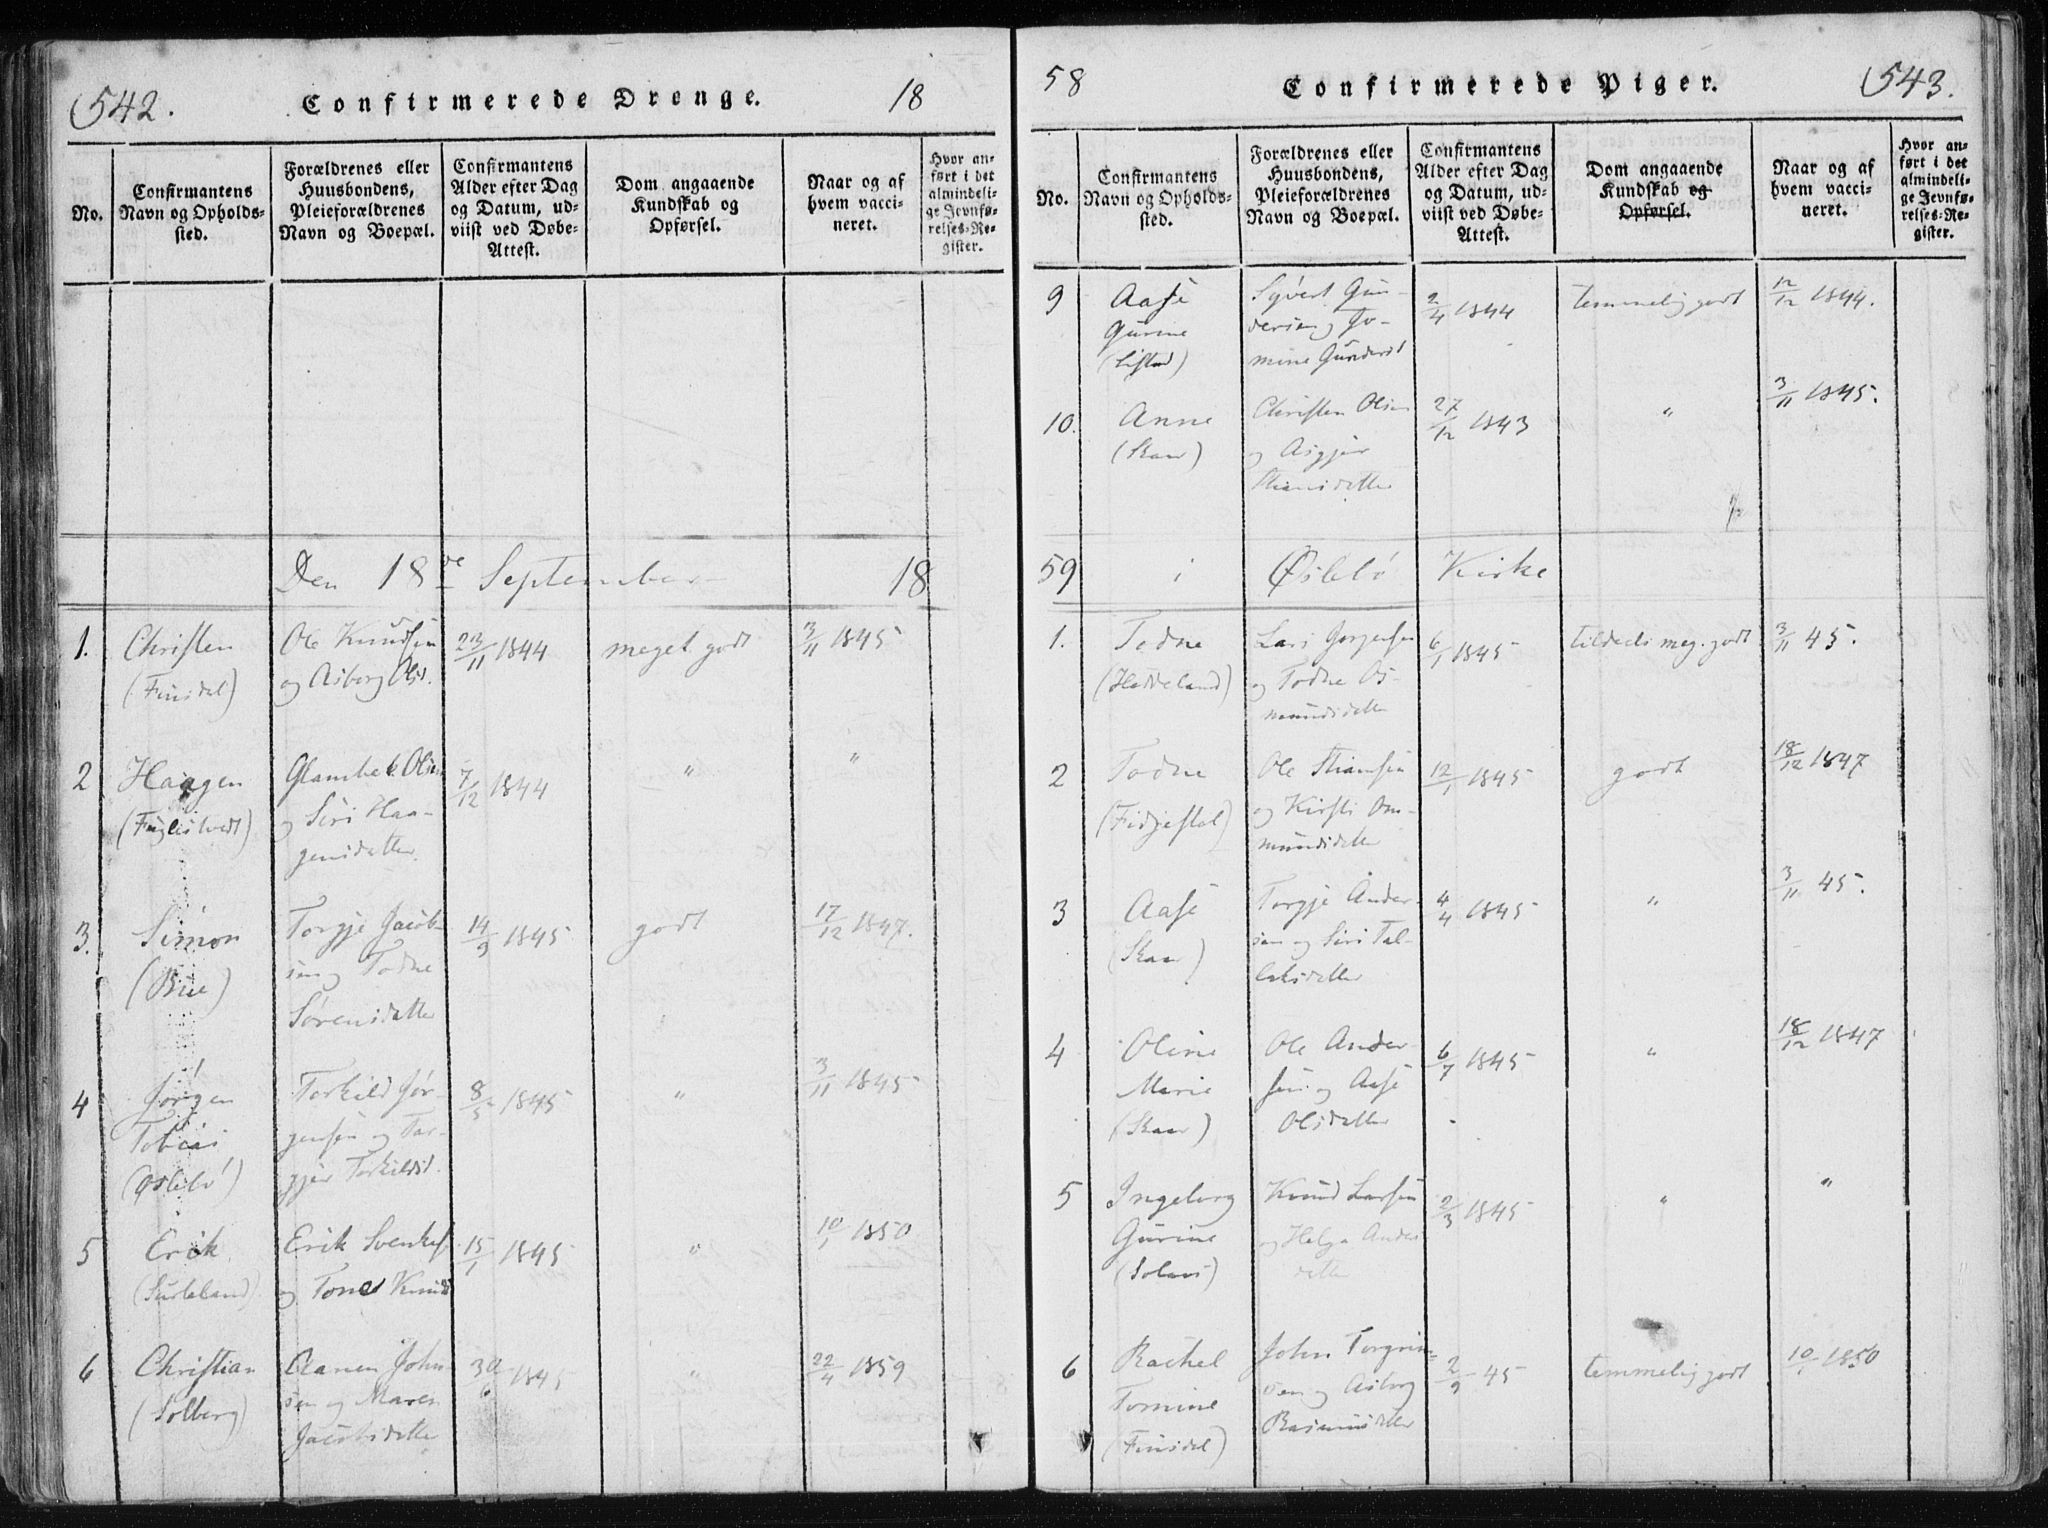 542.
Confirmerede Drenge.
18
No.
Confirmantens
Navn og Opholds-
sted.
Forældrenes eller
Huusbondens,
Pleieforældrenes
Navn og Boepæl.
Confirmantens
Alder efter Dag
og Datum, ud-
viist ved Døbe-
Attest.
Dom angaaende
Kundskab og
Opførsel.
Naar og af
hvem vacci-
neret.
Hvor an-
ført i det
almindeli-
ge Jevnfø-
relses-Re-
gister.
Den 18de September 18
1.
Christen
(Finsdal)
Ole Knudsen
og Asberg Olsd.
23/11 1844
meget godt
3/11 1845
2
Haagen
(Fuglestvedt)
Glambek Olsen
og Siri Haa-
gensdatter.
7/12 1844
"
"
3.
Simon
(Bue)
Torgje Jacob-
sen og Todne
Sørensdatter
14/9 1845
godt
17/12 1847.
4
Jørgen
Tobias
(Øslebø)
Torkild Jør-
gensen og Tor-
gjer Torkildsd.
8/5 1845
"
3/11 1845
5
Erik
Erik
og Tone Knudsd
15/1 1845
"
10/1 1850
6
Christian
(Solberg)
Aanen John-
sen og Maren
Jacobsdatter
30/6 1845
"
22/4 1859
58
Confirmerede Piger.
543.
No.
Confirmantens
Navn og Opholds-
sted.
Forældrenes eller
Huusbondens,
Pleieforældrenes
Navn og Boepæl.
Confirmantens
Alder efter Dag
og Datum, ud-
viist ved Døbe-
Attest.
Dom angaaende
Kundskab og
Opførsel.
Naar og af
hvem vacci-
neret.
Hvor an-
ført i det
almindeli-
ge Jevnfø-
relses-Re-
gister.
9
Aase
Gurine
Syvert Gun-
dersen og To-
mine Gundersd
2/4 1844
temmelig godt
12/12 1844.
10.
Anne
(Skaar)
Christen Olsen
og Asgjer
Stiansdatter
27/12 1843
"
3/11 1845.
59 i Øslebö Kirke
1.
Todne
(Heddeland)
Lars Jørgensen
og Todne Os-
mundsdatter
6/1 1845
tildeels meg. godt
3/11 45.
2
Todne
(Fidjestøl)
Ole Stiansen
og Kirsti Om-
mundsdatter
12/1 1845
godt
18/12 1847
3
Aase
(Skaar)
Torgje Ander-
sen og Siri Tal-
laksdatter
4/4 1845
"
3/11 45.
4
Oline
Marie
(Skaar)
Ole Ander-
sen og Aase
Olsdatter
6/7 1845
"
18/12 1847
5
Ingeborg
Gurine
(Solaas)
Knud Larsen
og Helga Anders
datter
2/3 1845
"
"
6
Rachel
Tomine
(Finsdal)
John Torgrim-
sen og Asborg
Rasmusdatter
2/9 45
temmelig godt
10/1 1850